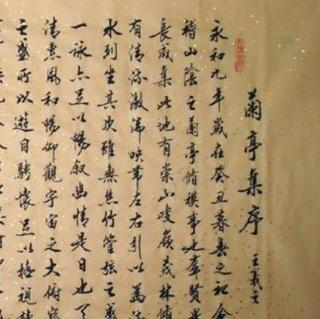 蘭亭集序 王羲之
永和九年歲在癸丑暮春之初會
稽山陰之蘭亭脩禊事也羣賢
長咸集此地有崇山峻嶺茂林脩
有清流激湍映帶左右引以為流
水列坐其次雖無絲竹管弦之盛
一詠亦足以暢叙幽情是日也
清惠風和暢仰觀宇宙之大俯察
之盛所以遊目騁懷足以極視聽